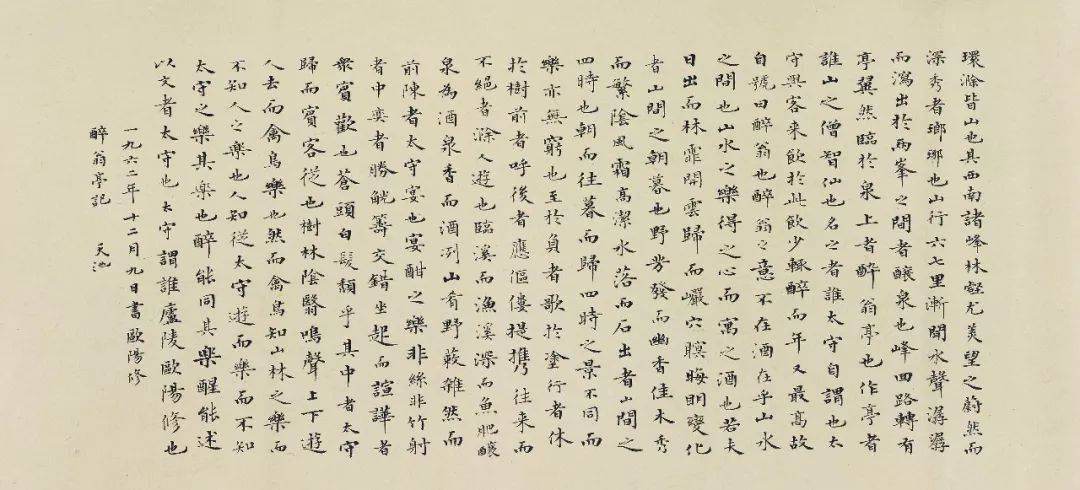 環滁皆山也其西南諸峰林壑尤美望之蔚然而
深秀者瑯琊也山行六七里漸聞水聲潺潺
而瀉出於兩峯之間者釀泉也峰回路轉有
亭翼然臨於泉上者醉翁亭也作亭者
誰山之僧智仙也名之者誰太守自謂也太
守與客來飲於此飲少輒醉而年又最高故
自號曰醉翁也醉翁之意不在酒在乎山水
之間也山水之樂得之心而寓之酒也若夫
日出而林霏開雲歸而巖穴暝晦明變化
者山間之朝暮也野芳發而幽香佳木秀
而繁陰風霜高潔水落而石出者山間之
四時也朝而往暮而歸四時之景不同而
樂亦無窮也至於負者歌於塗行者休
於樹前者呼後者應傴僂提攜往來而
不絕者滁人遊也臨溪而漁溪深而魚肥釀
泉為酒泉香而酒洌山肴野蔌雜然而
前陳者太守宴也宴酣之樂非絲非竹射
者中奕者勝觥籌交錯坐起而諠譁者
衆賓歡也蒼頭白髮頹乎其中者太守
歸而賓客從也樹林陰翳鳴聲上下遊
人去而禽鳥樂也然而禽鳥知山林之樂而
不知人之樂也人知從太守遊而樂而不知
太守之樂其樂也醉能同其樂醒能述
以文者太守也太守謂誰廬陵歐陽修也
一九六二年十二月九日書歐陽修
醉翁亭記 天池